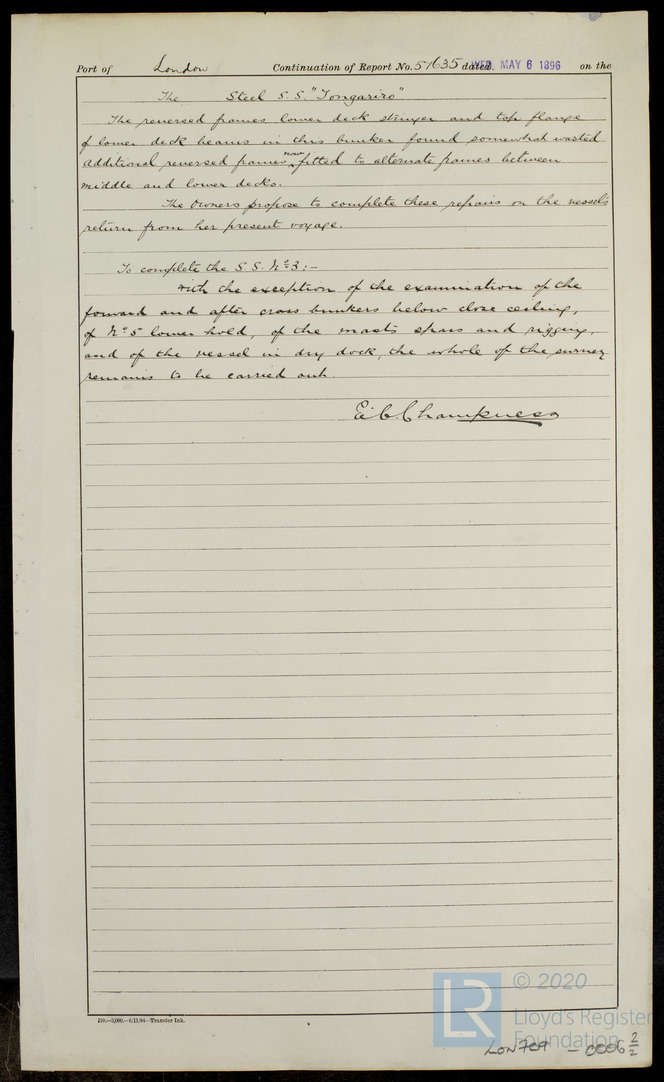 Port of London Continuation of Report No. 51635 dated WED. MAY 6 1896 on the
The Steel S.S. "Tongariro"
The reversed frames lower deck stringer and top flange
of lower deck beams in this bunker found somewhat wasted
additional reversed frames now fitted to alternate frames between
middle and lower decks.
The Owners propose to complete these repairs on the vessels
return from her present voyage.
To complete the S.S. No 3:-
With the exception of the examination of the
forward and after cross bunkers below close ceiling,
of No 5 lower hold, of the masts spars and rigging,
and of the vessel in dry dock, the whole of the survey
remains to be carried out.
E. C. Champness
210.—2,000.—6/11/94—Transfer Ink.
LR © 2020
Lloyd's Register
Foundation
LON709 - 0006 2/2